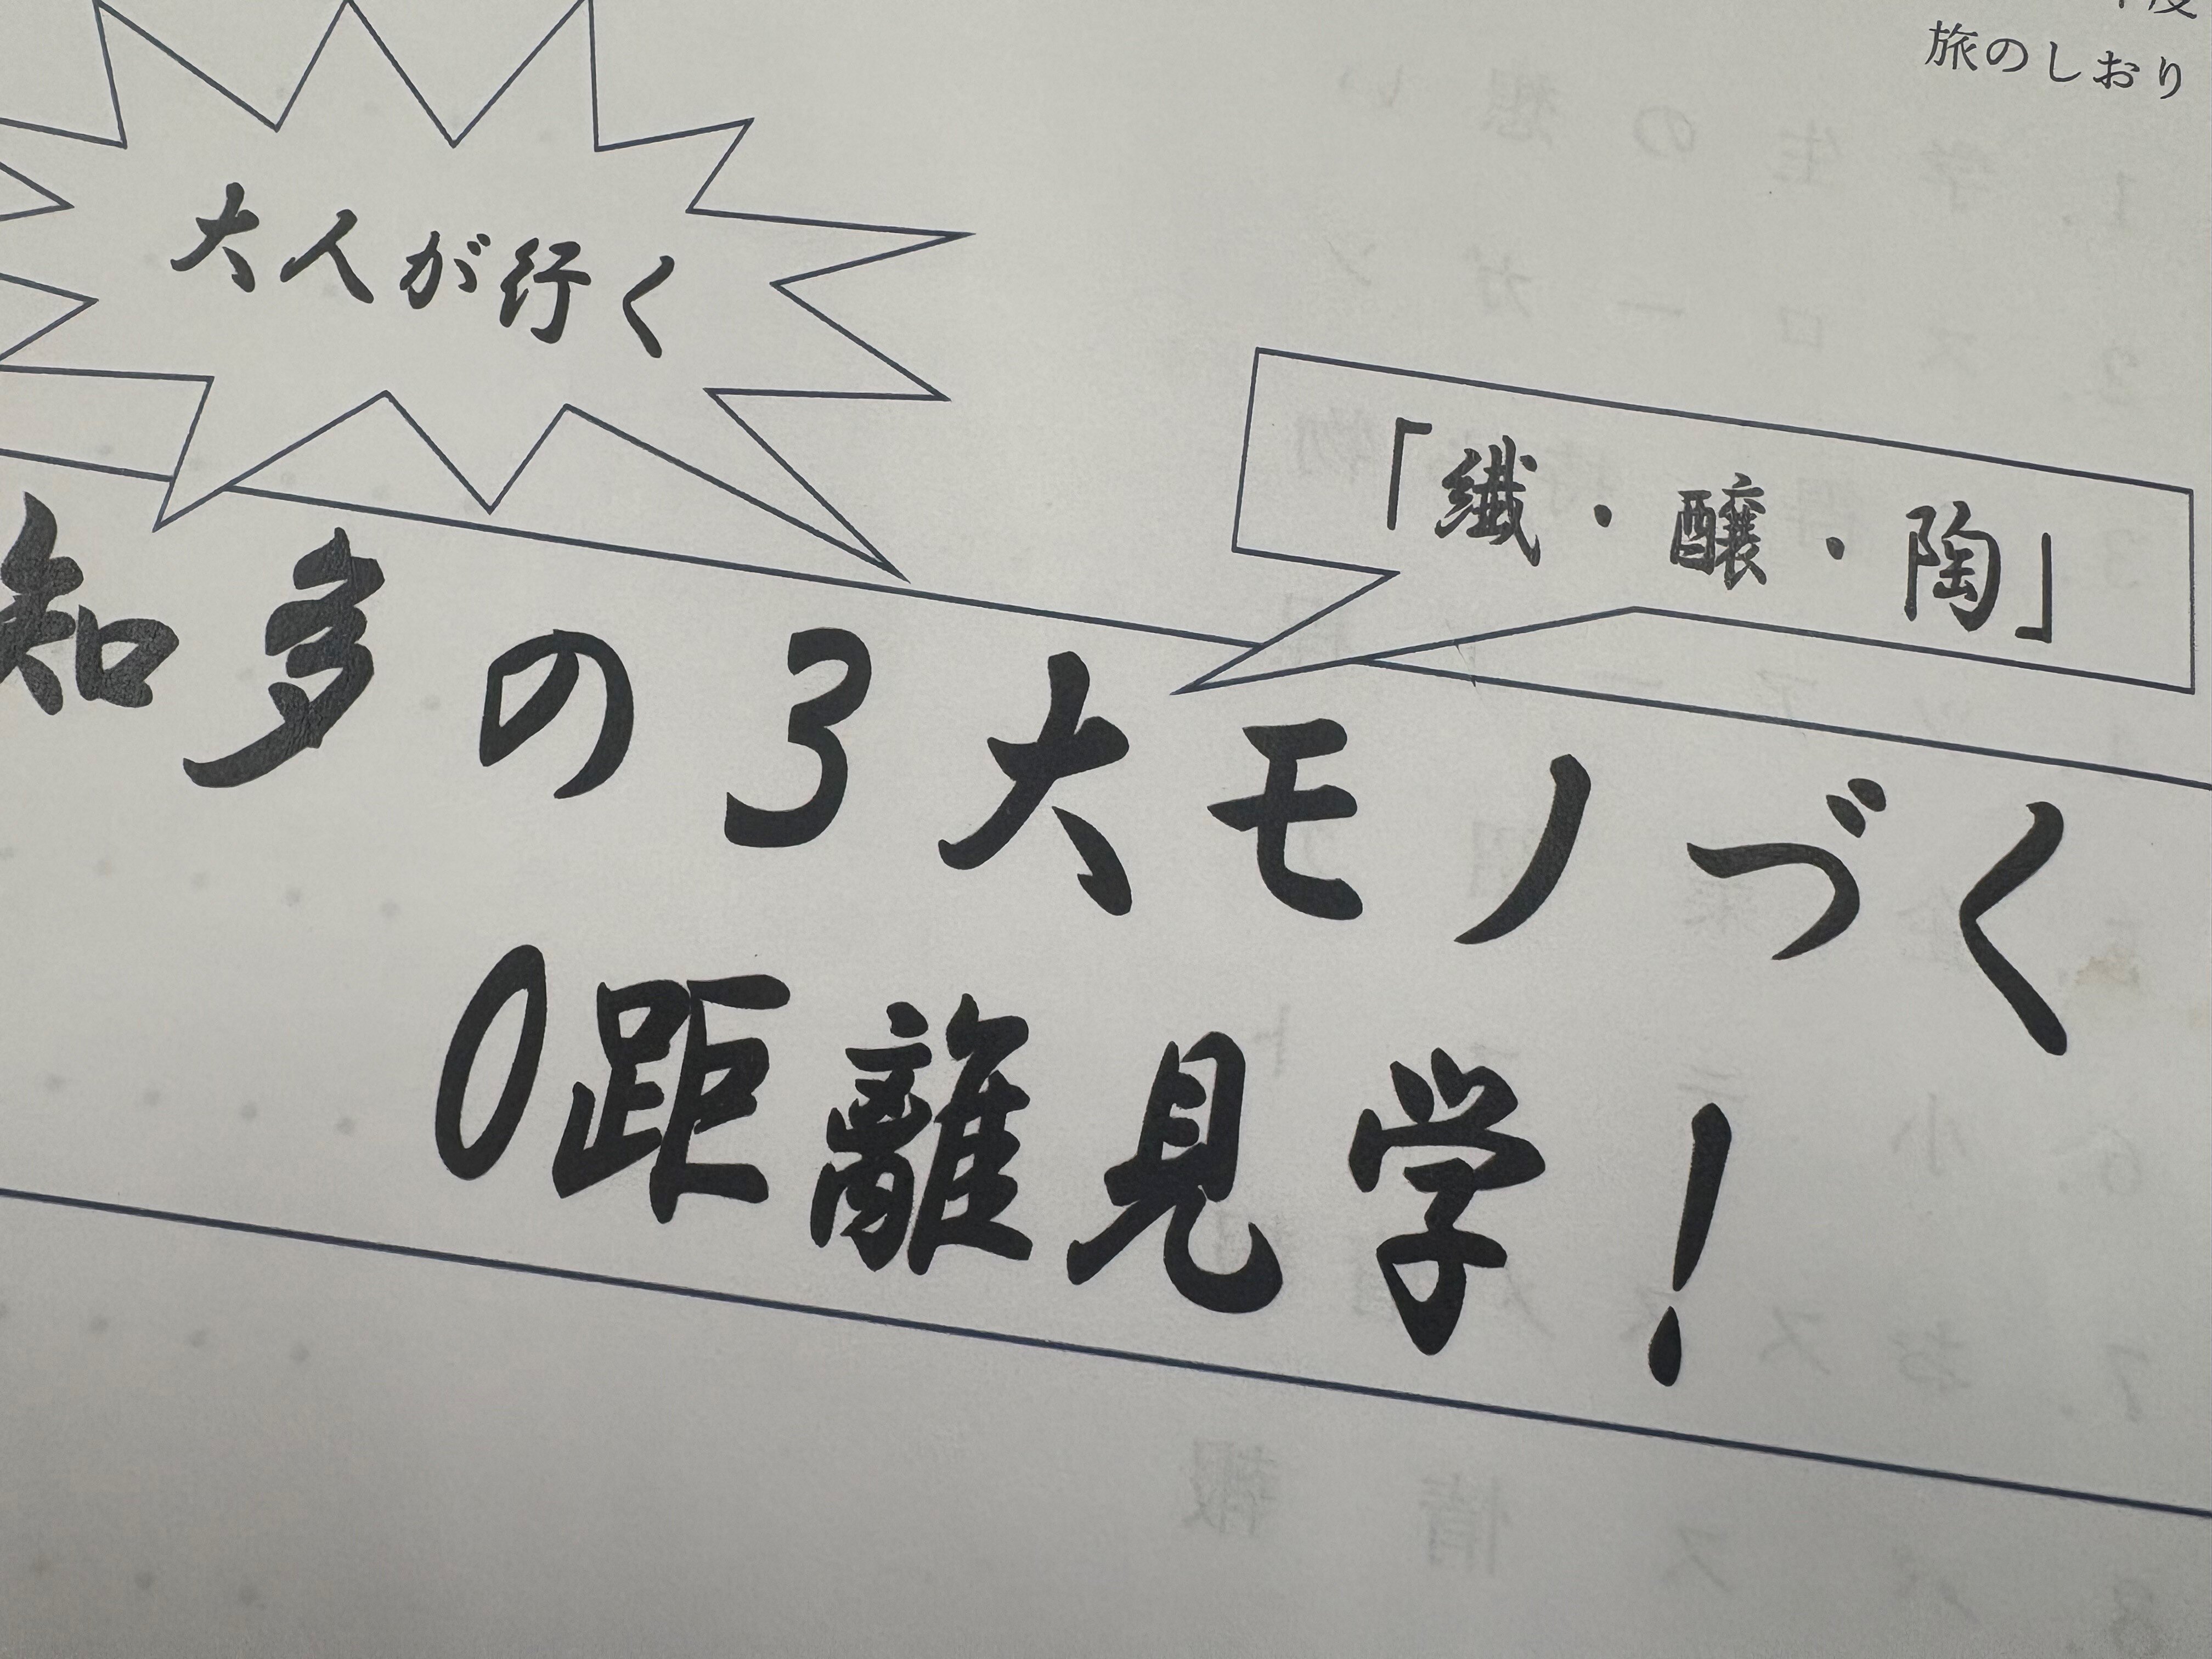 旅のしおり
大人が行く
「繊・醸・陶」
知多の3大モノづく
0距離見学！